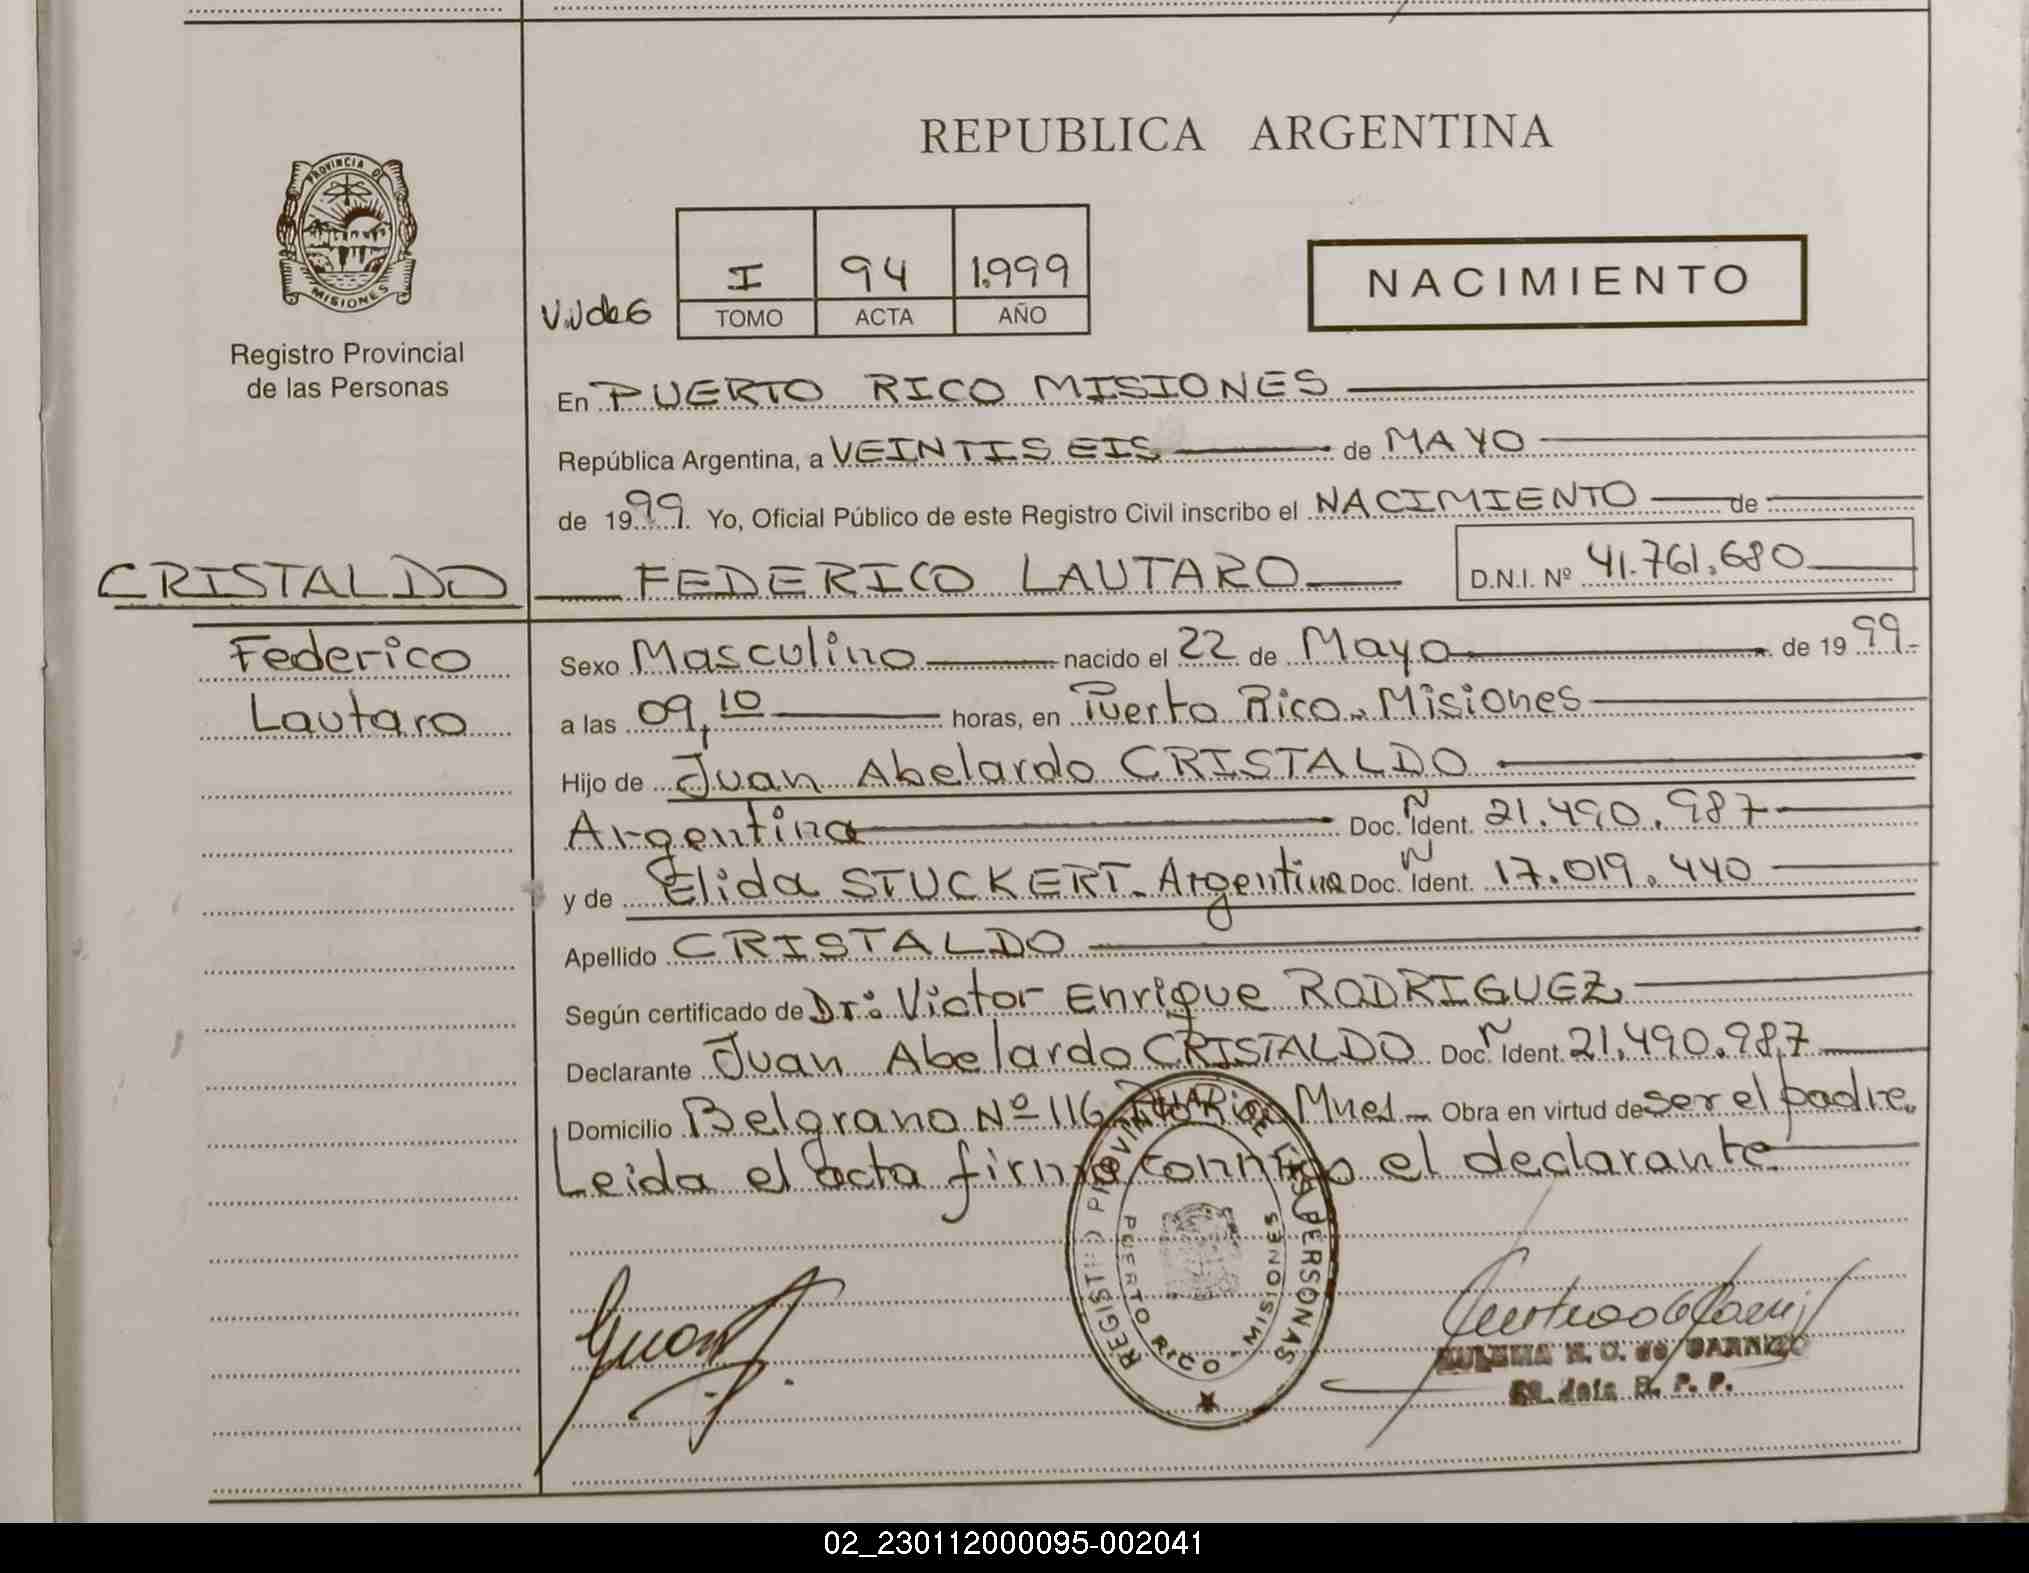 REPUBLICA ARGENTINA
PROVINCIA DE
MISIONES
Registro Provincial
de las Personas
I 94 1.999
TOMO ACTA AÑO
NACIMIENTO
En PUERTO RICO MISIONES
República Argentina, a VEINTISEIS de MAYO
de 1999. Yo, Oficial Público de este Registro Civil inscribo el NACIMIENTO de
CRISTALDO FEDERICO LAUTARO D.N.I. Nº 41.761.680
Federico
Lautaro
Sexo Masculino nacido el 22 de Mayo de 1999.-
a las 09,10 horas, en Puerto Rico. Misiones
Hijo de Juan Abelardo CRISTALDO
Argentina Doc. Ident. 21.490.987
y de Elida STUCKERT. Argentina Doc. Ident. 17.019.440
Apellido CRISTALDO
Según certificado de Dr: Victor Enrique RODRIGUEZ
Declarante Juan Abelardo CRISTALDO Doc. Ident. 21.490.987
Domicilio Belgrano Nº 116 Pto Rico Mnes. Obra en virtud de ser el padre.
Leida el acta firma conmigo el declarante.
REGISTRO PROVINCIAL DE LAS PERSONAS
PUERTO RICO - MISIONES
02_230112000095-002041